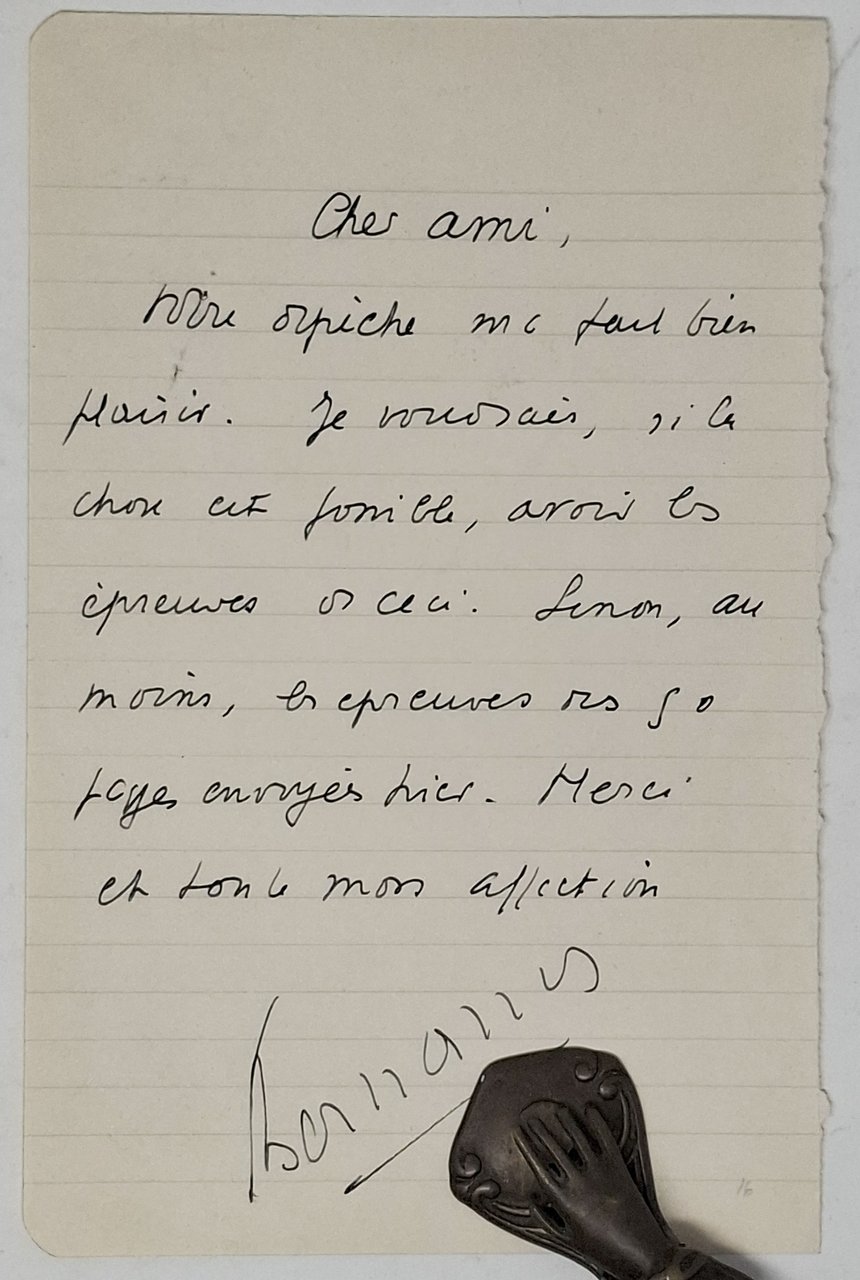 Cher ami,
Votre dépêche me fait bien
plaisir. Je voudrais, si la
chose est possible, avoir les
épreuves de ceci. Sinon, au
moins, les épreuves des 50
pages envoyées hier. Merci
et toute mon affection
Bernanos
16